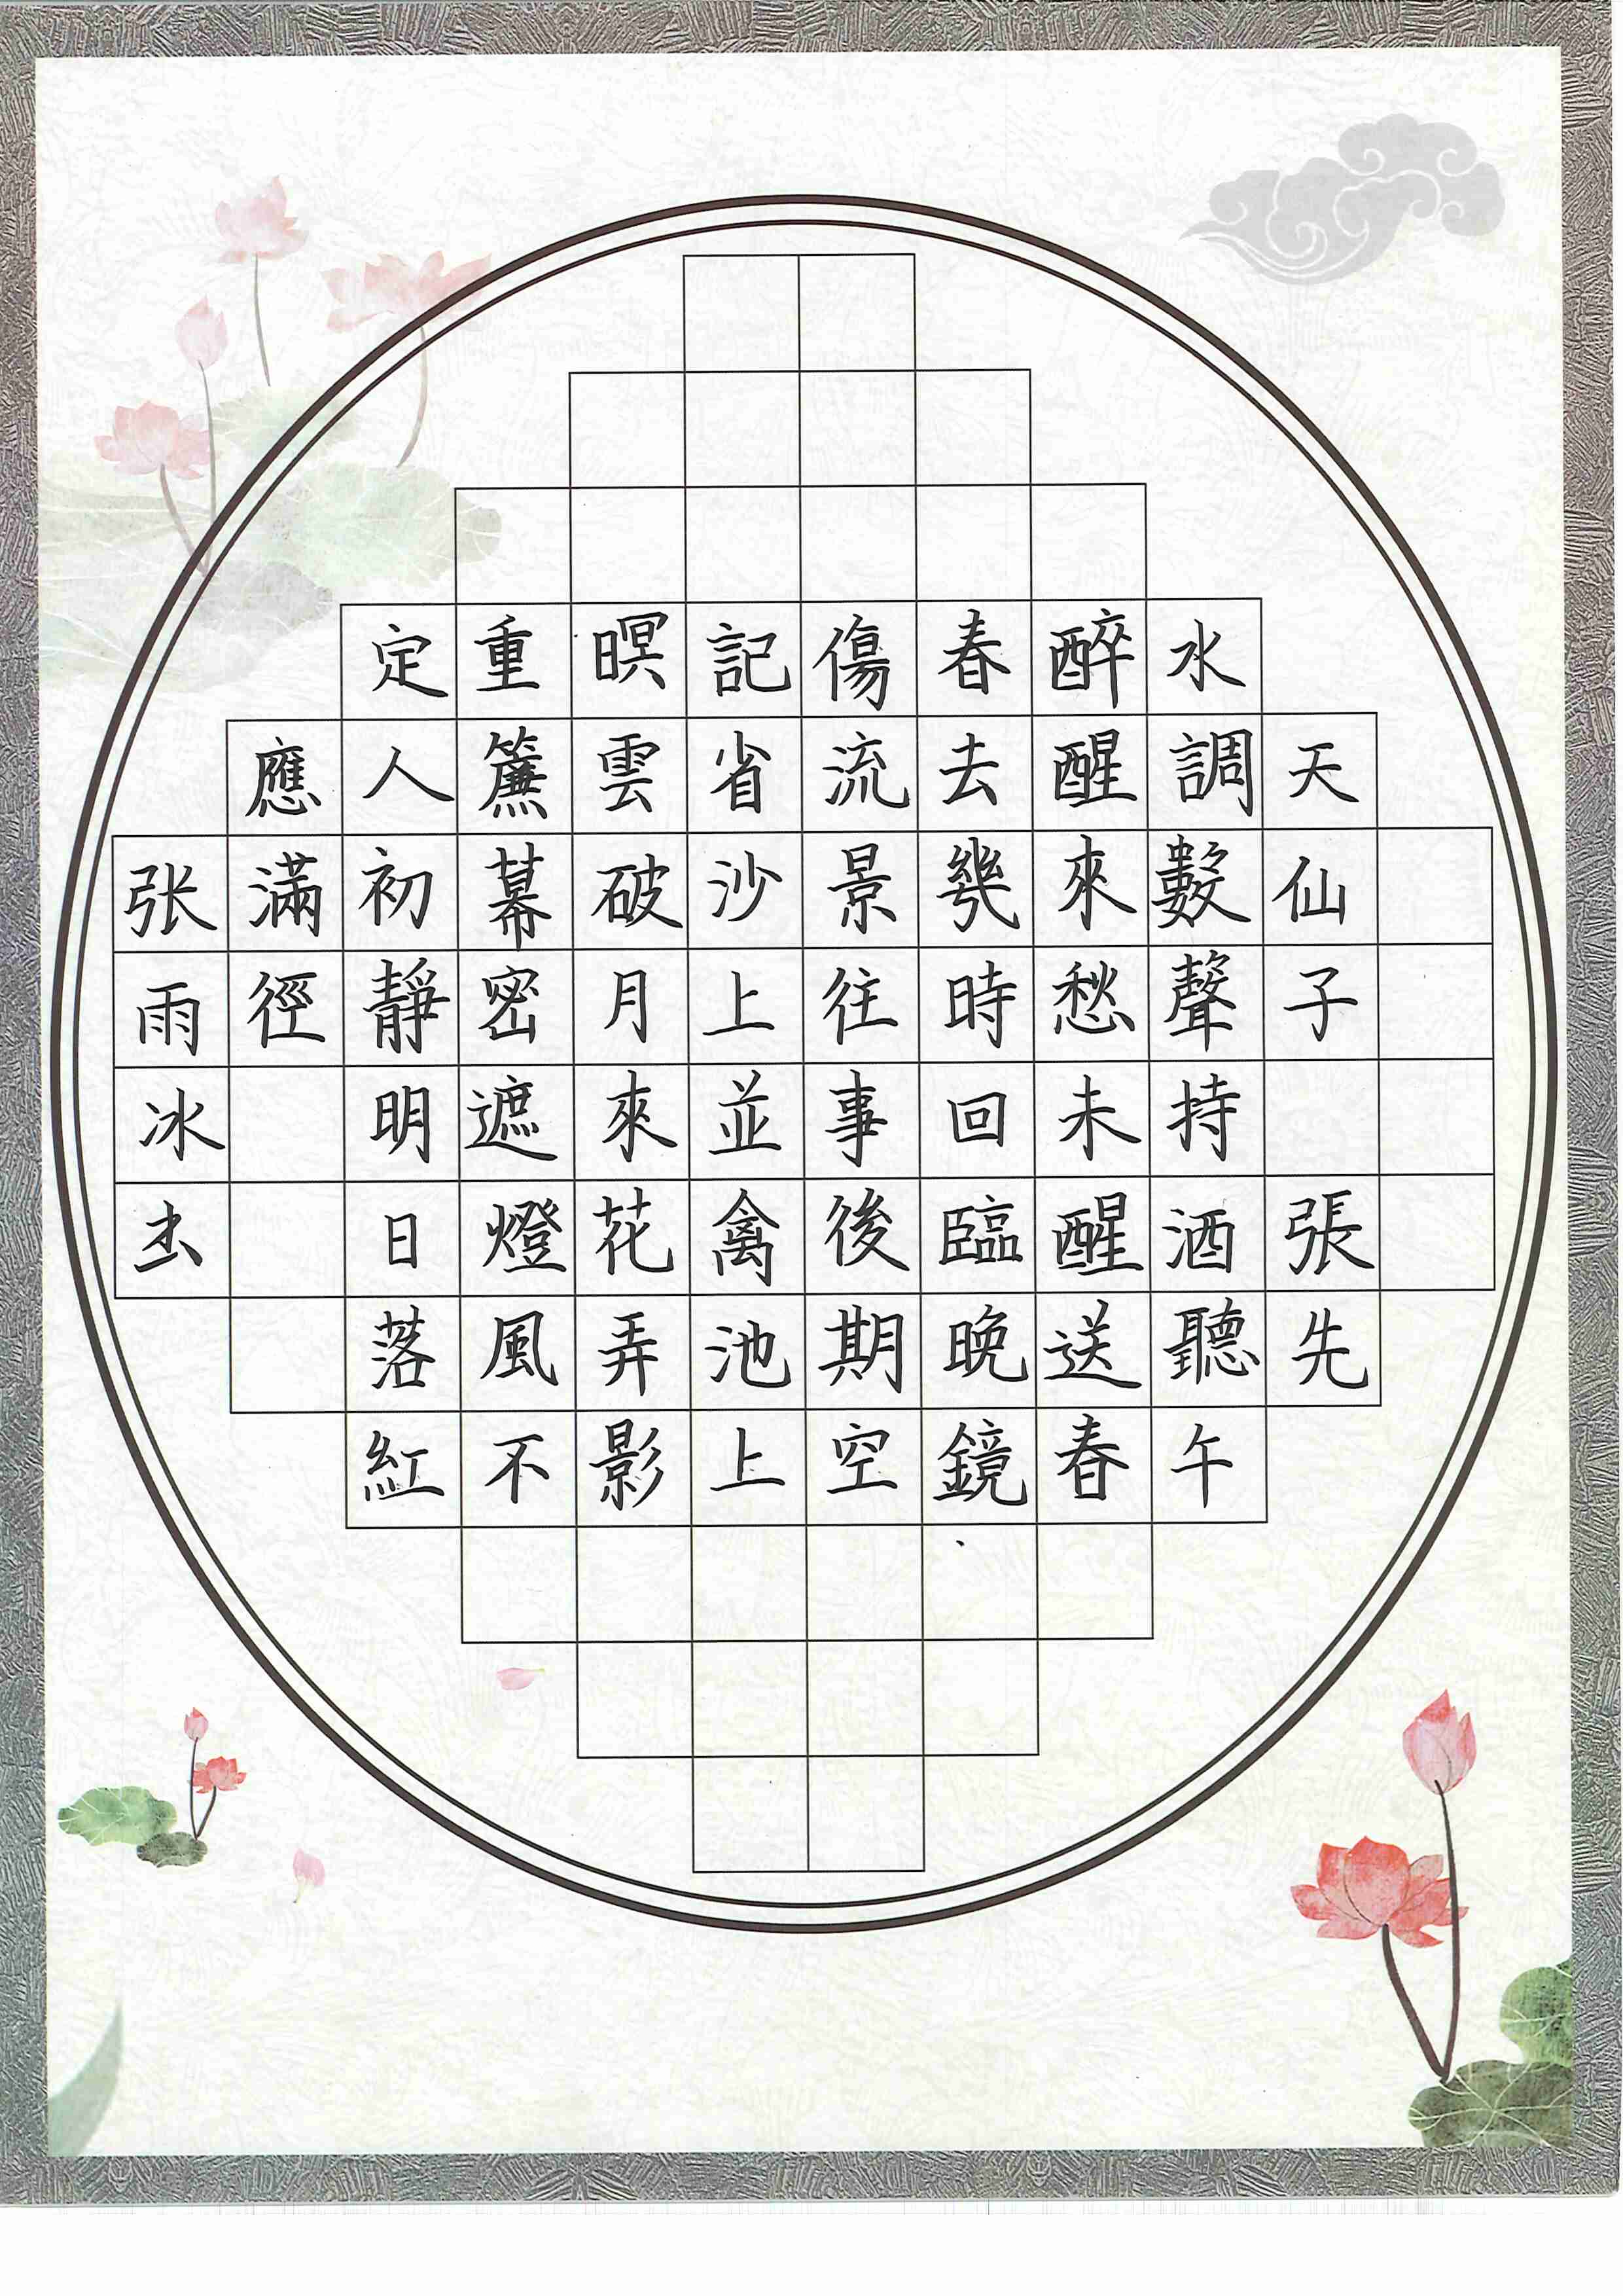 天仙子 張先
水調數聲持酒聽午
醉醒來愁未醒送春
春去幾時回臨晚鏡
傷流景往事後期空
記省沙上並禽池上
暝雲破月來花弄影
重簾幕密遮燈風不
定人初靜明日落紅
應滿徑
张雨冰